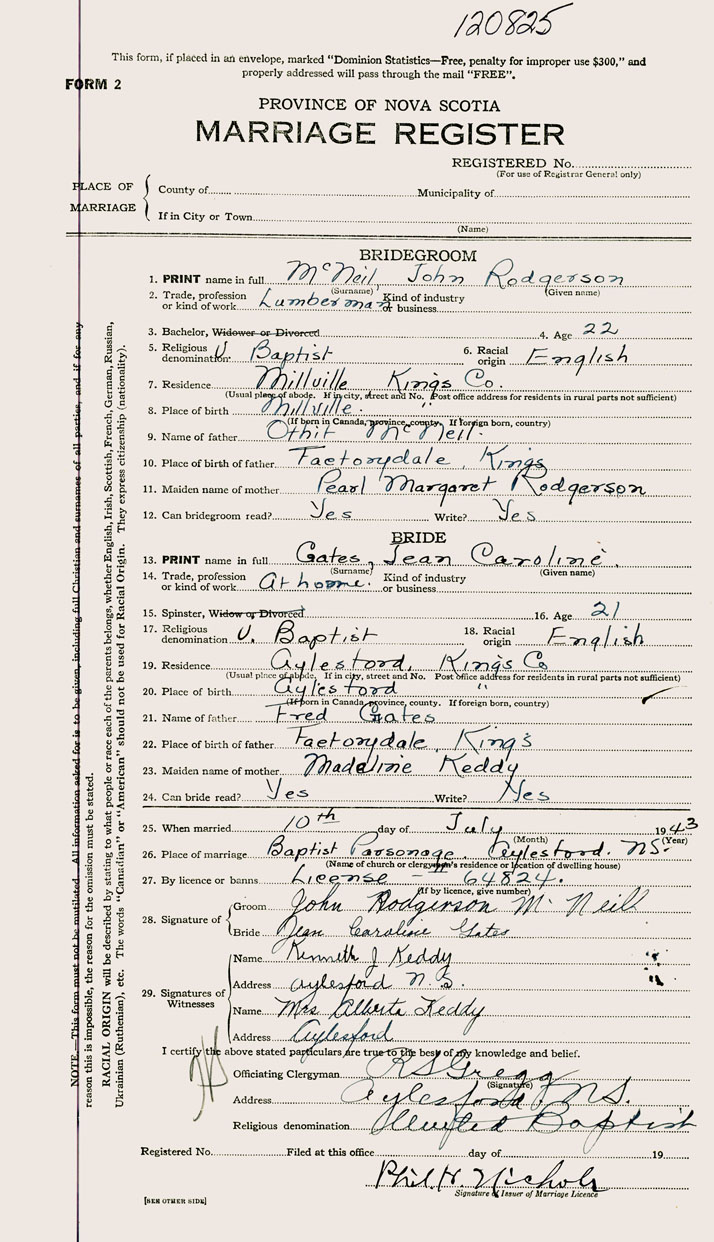 120825
This form, if placed in an envelope, marked "Dominion Statistics—Free, penalty for improper use $300," and
properly addressed will pass through the mail "FREE".
FORM 2
PROVINCE OF NOVA SCOTIA
MARRIAGE REGISTER
REGISTERED No.
(For use of Registrar General only)
PLACE OF MARRIAGE
County of Municipality of
If in City or Town
(Name)
BRIDEGROOM
1. PRINT name in full McNeil, John Rodgerson
(Surname) (Given name)
2. Trade, profession or kind of work Lumberman Kind of industry or business
3. Bachelor, Widower or Divorced 4. Age 22
5. Religious denomination U. Baptist 6. Racial origin English
7. Residence Millville Kings Co.
(Usual place of abode. If in city, street and No. Post office address for residents in rural parts not sufficient)
8. Place of birth Millville. "
(If born in Canada, province, county. If foreign born, country)
9. Name of father Othit McNeil.
10. Place of birth of father Factorydale, Kings
11. Maiden name of mother Pearl Margaret Rodgerson
12. Can bridegroom read? Yes Write? Yes
BRIDE
13. PRINT name in full Gates, Jean Caroline.
(Surname) (Given name)
14. Trade, profession or kind of work At home. Kind of industry or business
15. Spinster, Widow or Divorced 16. Age 21
17. Religious denomination U. Baptist 18. Racial origin English
19. Residence Aylesford, Kings Co
(Usual place of abode. If in city, street and No. Post office address for residents in rural parts not sufficient)
20. Place of birth Aylesford "
(If born in Canada, province, county. If foreign born, country)
21. Name of father Fred Gates
22. Place of birth of father Factorydale, King's
23. Maiden name of mother Madeline Keddy
24. Can bride read? Yes Write? Yes
25. When married 10th day of July 1943
(Month) (Year)
26. Place of marriage Baptist Parsonage, Aylesford. NS.
(Name of church or clergyman's residence or location of dwelling house)
27. By licence or banns License - 64824.
(If by licence, give number)
28. Signature of
Groom John Rodgerson McNeill
Bride Jean Caroline Gates
29. Signatures of Witnesses
Name Kenneth J Keddy
Address Aylesford N.S.
Name Mrs Alberta Keddy
Address Aylesford
I certify the above stated particulars are true to the best of my knowledge and belief.
Officiating Clergyman R S Gregg
(Signature)
Address Aylesford NS.
Religious denomination United Baptist
Registered No. Filed at this office day of 19
Phil. H. Nichols
Signature of Issuer of Marriage Licence
[SEE OTHER SIDE]
NOTE.—This form must not be mutilated. All information asked for is to be given, including full Christian and surnames of all parties, and if for any
reason this is impossible, the reason for the omission must be stated.
RACIAL ORIGIN will be described by stating to what people or race each of the parents belongs, whether English, Irish, Scottish, French, German, Russian,
Ukrainian (Ruthenian), etc. The words "Canadian" or "American" should not be used for Racial Origin. They express citizenship (nationality).